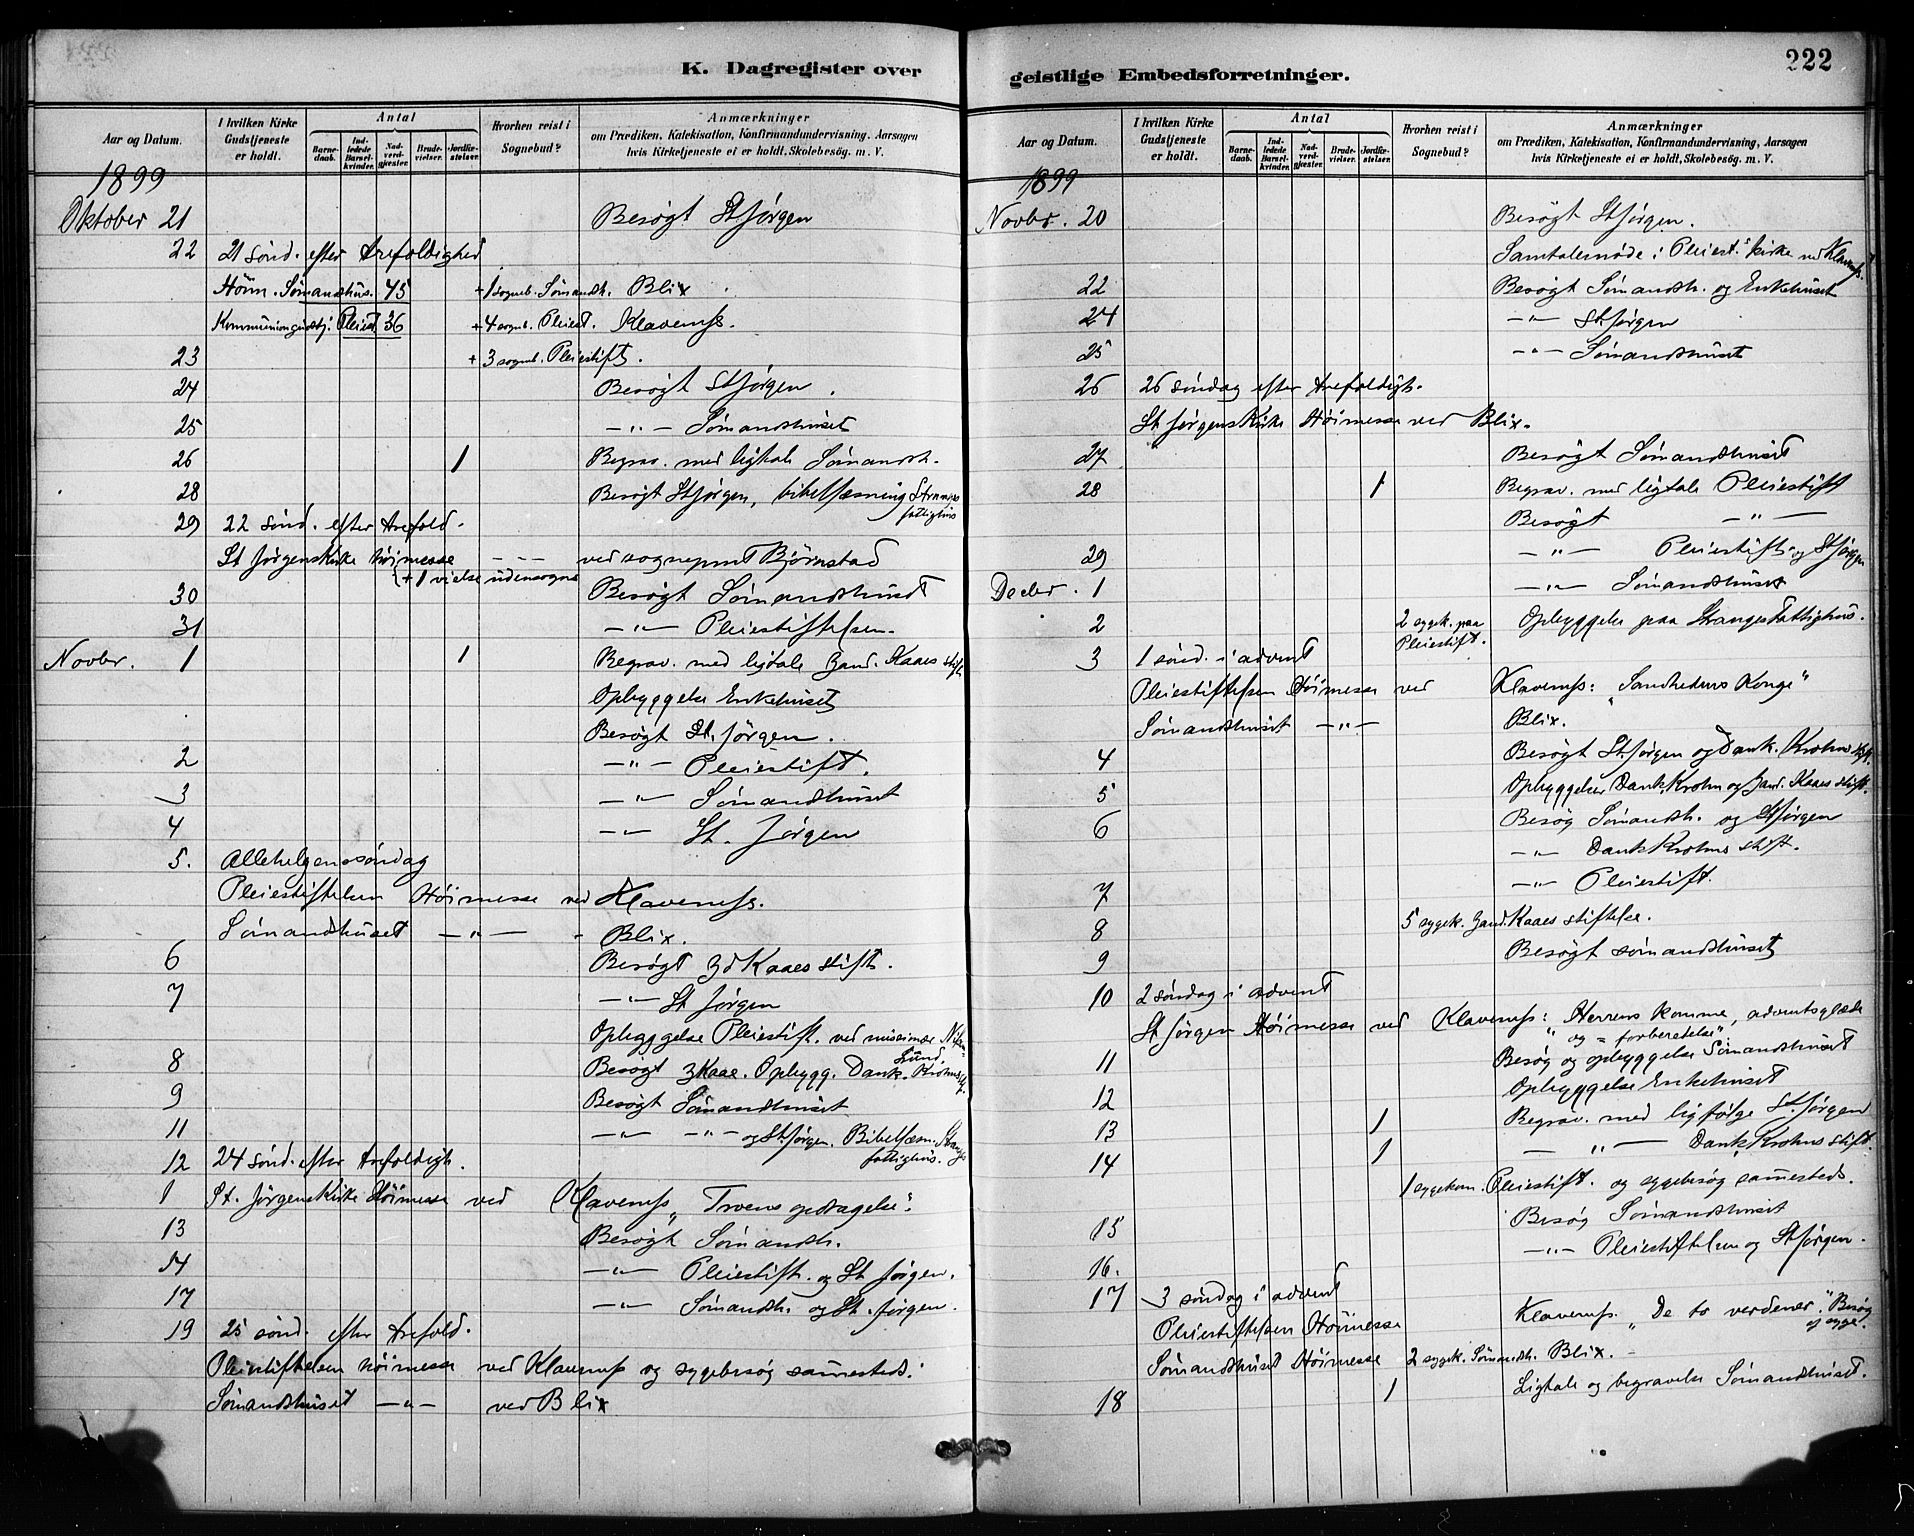 222
K. Dagregister over geistlige Embedsforretninger.
Aar og Datum. I hvilken Kirke Gudstjeneste er holdt. Antal Barnedaab. Indledede Barselkvinder. Nadverdgjester. Brudevielser. Jordfæstelser. Hvorhen reist i Sognebud? Anmærkninger om Prædiken, Katekisation, Konfirmandundervisning, Aarsagen hvis Kirketjeneste ei er holdt, Skolebesøg. m. V.
1899
Oktober 21 Besøgt St Jørgen
22 21 sønd. efter trefoldighed
Høim. Sømandshus. 45 + 1 sogneb. Sømandh. Blix
Kommuniongudstj: Pleiest 36 + 4 sogneb. Pleiest. Klaveness.
23 + 3 sogneb. Pleiestift.
24 Besøgt St Jørgen.
25 — " — Sømandshuset
26 1 Begrav. med ligtale Sømandsh.
28 Besøgt St Jørgen, bibellæsning Stranges
fattighus
29 22 sønd. efter trefold.
St Jørgens Kirke høimesse - - - ved sogneprest Bjørnstad
{+ 1 vielse udensogns
30 Besøgt Sømandshuset
31 — " — Pleiestiftelsen.
Novbr. 1 1 Begrav. med ligtale Zand. Kaaes stift
Opbyggelse Enkehuset
Besøgt St. Jørgen.
2 — " — Pleiestift.
3 — " — Sømandshuset
4 — " — St. Jørgen
5. Allehelgensøndag
Pleiestiftelsen Høimesse ved Klaveness.
Sømandshuset — " — " Blix.
6 Besøgt Zd Kaaes stift.
7 — " — St Jørgen
Opbyggelse Pleiestift. ved
8 Besøgt Z Kaae. Opbygg. Dank. Krohns st.
9 Besøgt Sømandshuset
11 — " — — " — og St Jørgen. Bibellæsn. Stranges
fattighus.
12 24 sønd. efter trefoldigh.
1 St. Jørgens Kirke Høimesse ved Klaveness „Troens opdragelse".
13 Besøgt Sømandh.
14 — " — Pleiestift. og St Jørgen.
17 — " — Sømandh. og St. Jørgen.
19 25 sønd. efter trefold.
Pleiestiftelsen høimesse ved Klaveness og sygebesøg sammesteds.
Sømandshuset — " — ved Blix
Aar og Datum. I hvilken Kirke Gudstjeneste er holdt. Antal Barnedaab. Indledede Barselkvinder. Nadverdgjester. Brudevielser. Jordfæstelser. Hvorhen reist i Sognebud? Anmærkninger om Prædiken, Katekisation, Konfirmandundervisning, Aarsagen hvis Kirketjeneste ei er holdt, Skolebesøg. m. V.
1899
Novbr. 20 Besøgt St Jørgen.
Samtalemøde i Pleiest. kirke ved Klaveness.
22 Besøgt Sømandh. og Enkehuset
24 — " — St Jørgen
25 — " — Sømandshuset
26 26 søndag efter trefoldigh.
St Jørgens Kirke Høimesse ved Blix.
27 Besøgt Sømandshuset
28 1 Begrav. med ligtale Pleiestift
Besøgt — " —
29 — " — Pleiestift. og St Jørgen
Decbr. 1 — " — Sømandshuset
2 2 sygek. paa Pleiestift. Opbyggelse paa Stranges Fattighus.
3 1 sønd. i advent
Pleiestiftelsen Høimesse ved Klaveness: „Sandhedens Konge"
Sømandshuset — " — Blix.
4 Besøgt St Jørgen og Dank. Krohns stift.
5 Opbyggelse Dank. Krohn og Zand. Kaaes stift.
6 Besøg Sømandh. og St Jørgen
— " — Dank Krohns stift.
7 — " — Pleiestift.
8 5 sygek. Zand. Kaaes stiftelse.
9 Besøgt sømandshuset
10 2 søndag i advent
St Jørgen Høimesse ved Klaveness: „Herrens komme, adventsglæde
og = forberedelse"
11 Besøg og opbyggelse Sømandshuset
12 Opbyggelse Enkehuset
13 1 Begrav. med ligfølge St Jørgen
14 1 — " — Dank Krohns stift.
1 sygekom. Pleiestift. og sygebesøg sammesteds.
15 Besøg Sømandshuset
16. — " — Pleiestiftelsen og St Jørgen.
17 3 søndag i advent
Pleiestiftelsen Høimesse Klaveness. „De to verdener". Besøg
Sømandshuset Høimesse 2 sygek. Sømandh. Blix. -
18 1 Ligtale og begravelse Sømandshuset.